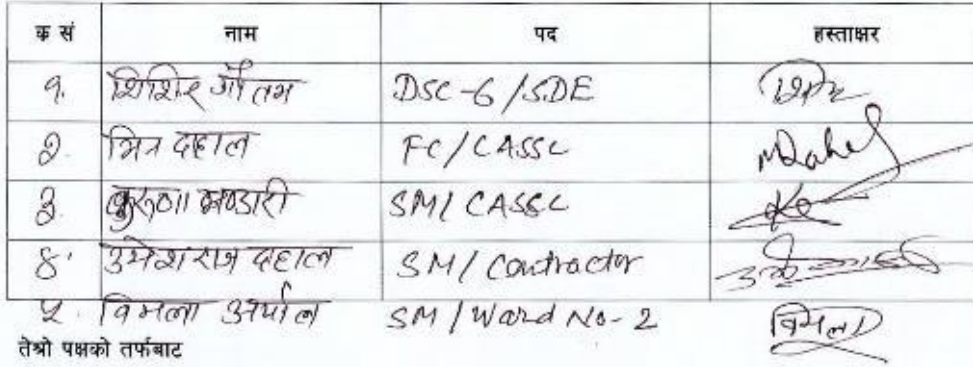 क सं नाम पद हस्ताक्षर
१. शिशिर गौतम DSC-6/SDE
२. मित्र दाहाल FC/CASSC MDahal
३. करुणा भण्डारी SM/CASSC
४. उमेश राज दाहाल SM/Contractor
५. विमला अर्याल SM/Ward No-2 विमला
तेश्रो पक्षको तर्फबाट